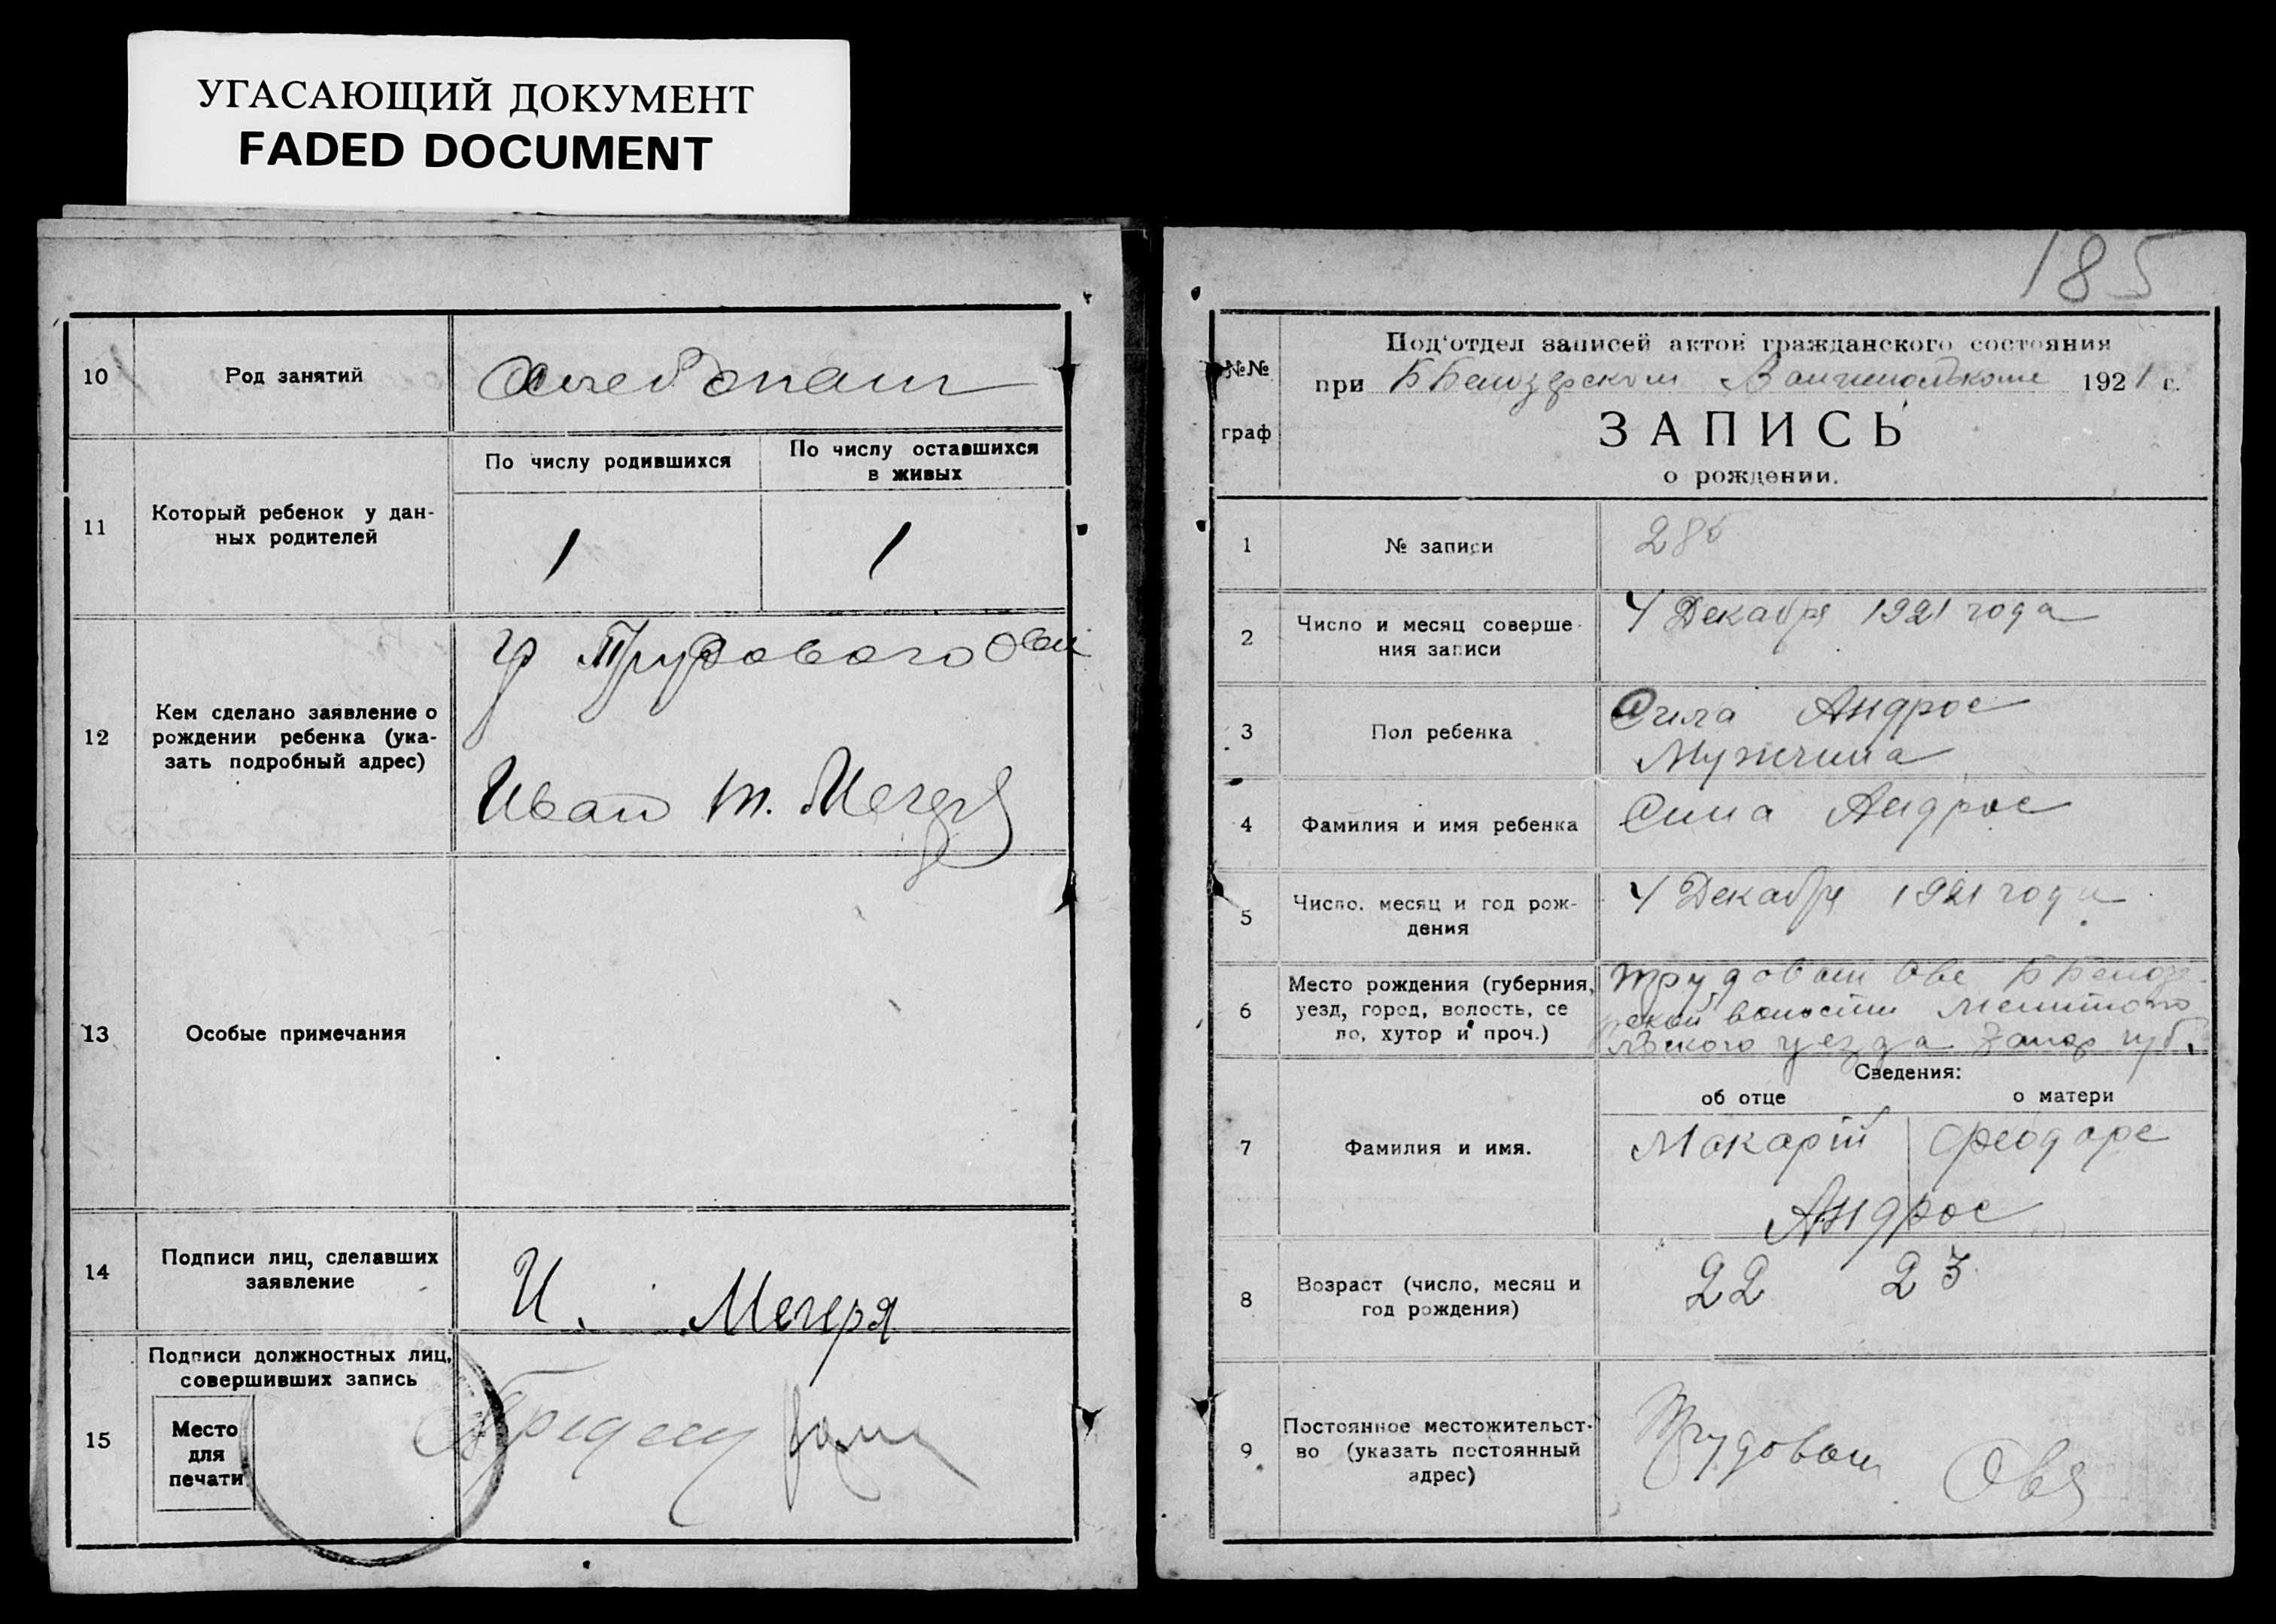 УГАСАЮЩИЙ ДОКУМЕНТ
FADED DOCUMENT
10
Род занятий
11
Который ребенок у дан-
ных родителей
По числу родившихся
По числу оставшихся
в живых
1
1
12
Кем сделано заявление о
рождении ребенка (ука-
зать подробный адрес)
гр Трудового
Иван т. Мегеря
13
Особые примечания
14
Подписи лиц, сделавших
заявление
И. Мегеря
15
Подписи должностных лиц,
совершивших запись
Место
для
печати
185
№№
граф
Под'отдел записей актов гражданского состояния
при 1921 г.
ЗАПИСЬ
о рождении.
1
№ записи
2
Число и месяц соверше-
ния записи
4 Декабря 1921 года
3
Пол ребенка
Андрос
Мужчина
4
Фамилия и имя ребенка
Андрос
5
Число, месяц и год рож-
дения
4 Декабря 1921 года
6
Место рождения (губерния,
уезд, город, волость, се
ло, хутор и проч.)
ской волости Мелитопо
льского уезда Запор губ.
Сведения:
об отце
о матери
7
Фамилия и имя.
Макарий
Феодора
Андрос
8
Возраст (число, месяц и
год рождения)
22
23
9
Постоянное местожительст-
во (указать постоянный
адрес)